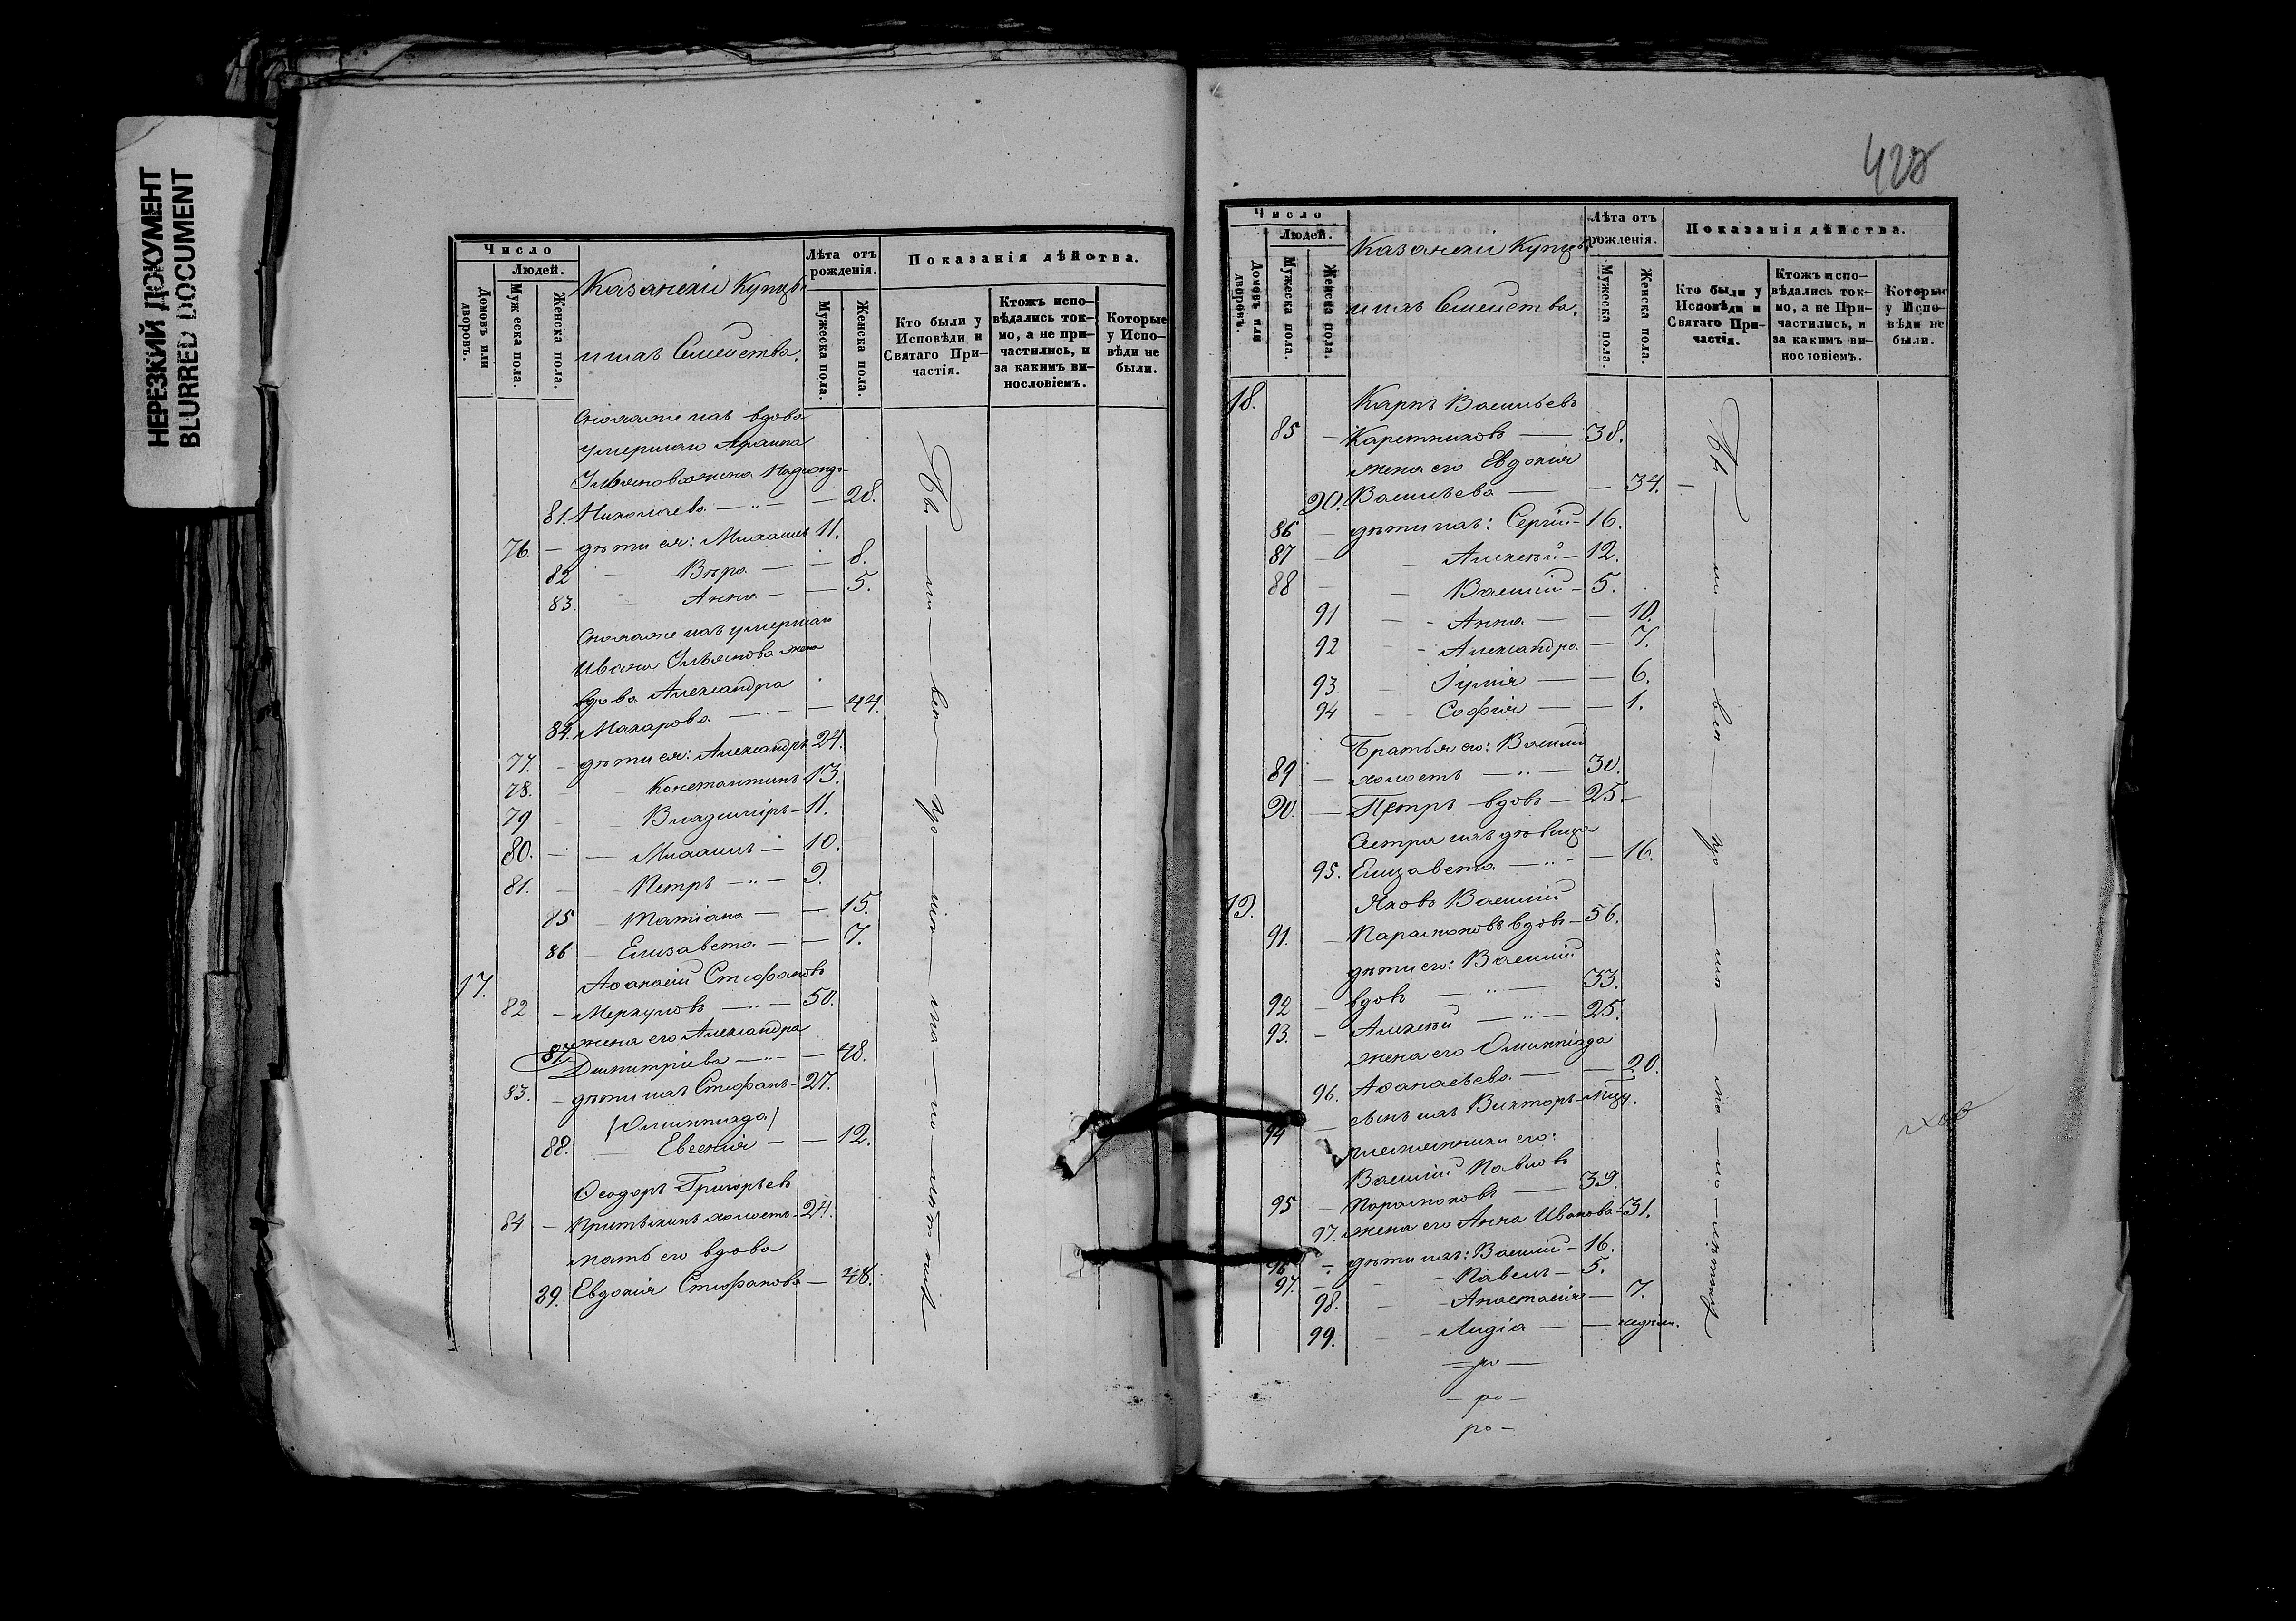 НЕРЕЗКИЙ ДОКУМЕНТ
BLURRED DOCUMENT
Число
Людей.
Домовъ или дворовъ.
Мужеска пола.
Женска пола.
Казанскіи Купцы
и ихъ Семейства.
Лѣта отъ рожденія.
Мужеска пола.
Женска пола.
Показанія дѣйства.
Кто были у Исповѣди и Святаго Причастія.
Ктожъ исповѣдались токмо, а не причастились, и за какимъ винословіемъ.
Которые у Исповѣди не были.
вдова
умершаго
Ульянова жена
81. Николаева — 28.
76. — дѣти ея: Михаилъ 11.
82 — Вѣра — — 8.
83. — Анна — — 5.
ихъ умершаго
Ивана Ульянова жена
вдова Александра
84. Макарова — — 44.
77. — дѣти ея: Александръ 24.
78. — Константинъ 13.
79 — Владиміръ — 11.
80. — — Михаилъ — 10.
81. — Петръ — 9.
85 — Татіана — — 15.
86 — Елизавета — — 7.
17. Аѳанасій Стефановъ
82 — Меркуловъ — 50.
жена его Александра
87 Димитріева — — 48.
83. — дѣти ихъ Стефанъ — 27.
(Олимпіада)
88. — Евгенія — — 12.
Ѳеодоръ Григорьевъ
84 — холостъ — 24.
мать его вдова
89. Евдокія Стефанова — 48.
428
Число
Людей.
Домовъ или дворовъ.
Мужеска пола.
Женска пола.
Казанскіи Купцы
и ихъ Семейства.
Лѣта отъ рожденія.
Мужеска пола.
Женска пола.
Показанія дѣйства.
Кто были у Исповѣди и Святаго Причастія.
Ктожъ исповѣдались токмо, а не Причастились, и за какимъ винословіемъ.
Которые у Исповѣди не были.
18. Карпъ Васильевъ
85 — Каретниковъ — 38.
жена его Евдокія
90. Васильева — — 34. —
86 — дѣти ихъ: Сергій — 16.
87 — — Алексѣй — 12.
88 — — Василій — 5.
91 — — Анна — — 10.
92 — Александра — 7.
93 — Іулія — — 6.
94 — — Софія — — 1.
Братья его: Василій
89 — холостъ — 30.
90. — Петръ вдовъ — 25 —
Сестра ихъ дѣвица
95. Елизавета — — 16.
19. Яковъ Василій
91. — вдовъ — 56.
дѣти его: Василій
92 — вдовъ — 33.
93. — Алексѣй — 25.
жена его Олимпіада
96. Аѳанасьева — — 20.
94 — сынъ ихъ Викторъ —
племянники его:
Василій Павловъ
95 — 39.
97. жена его Анна Иванова — 31.
96 — дѣти ихъ: Василій — 16.
97. — — Павелъ — 5.
98. — — Анастасія — 7.
99. — — Лидія — —